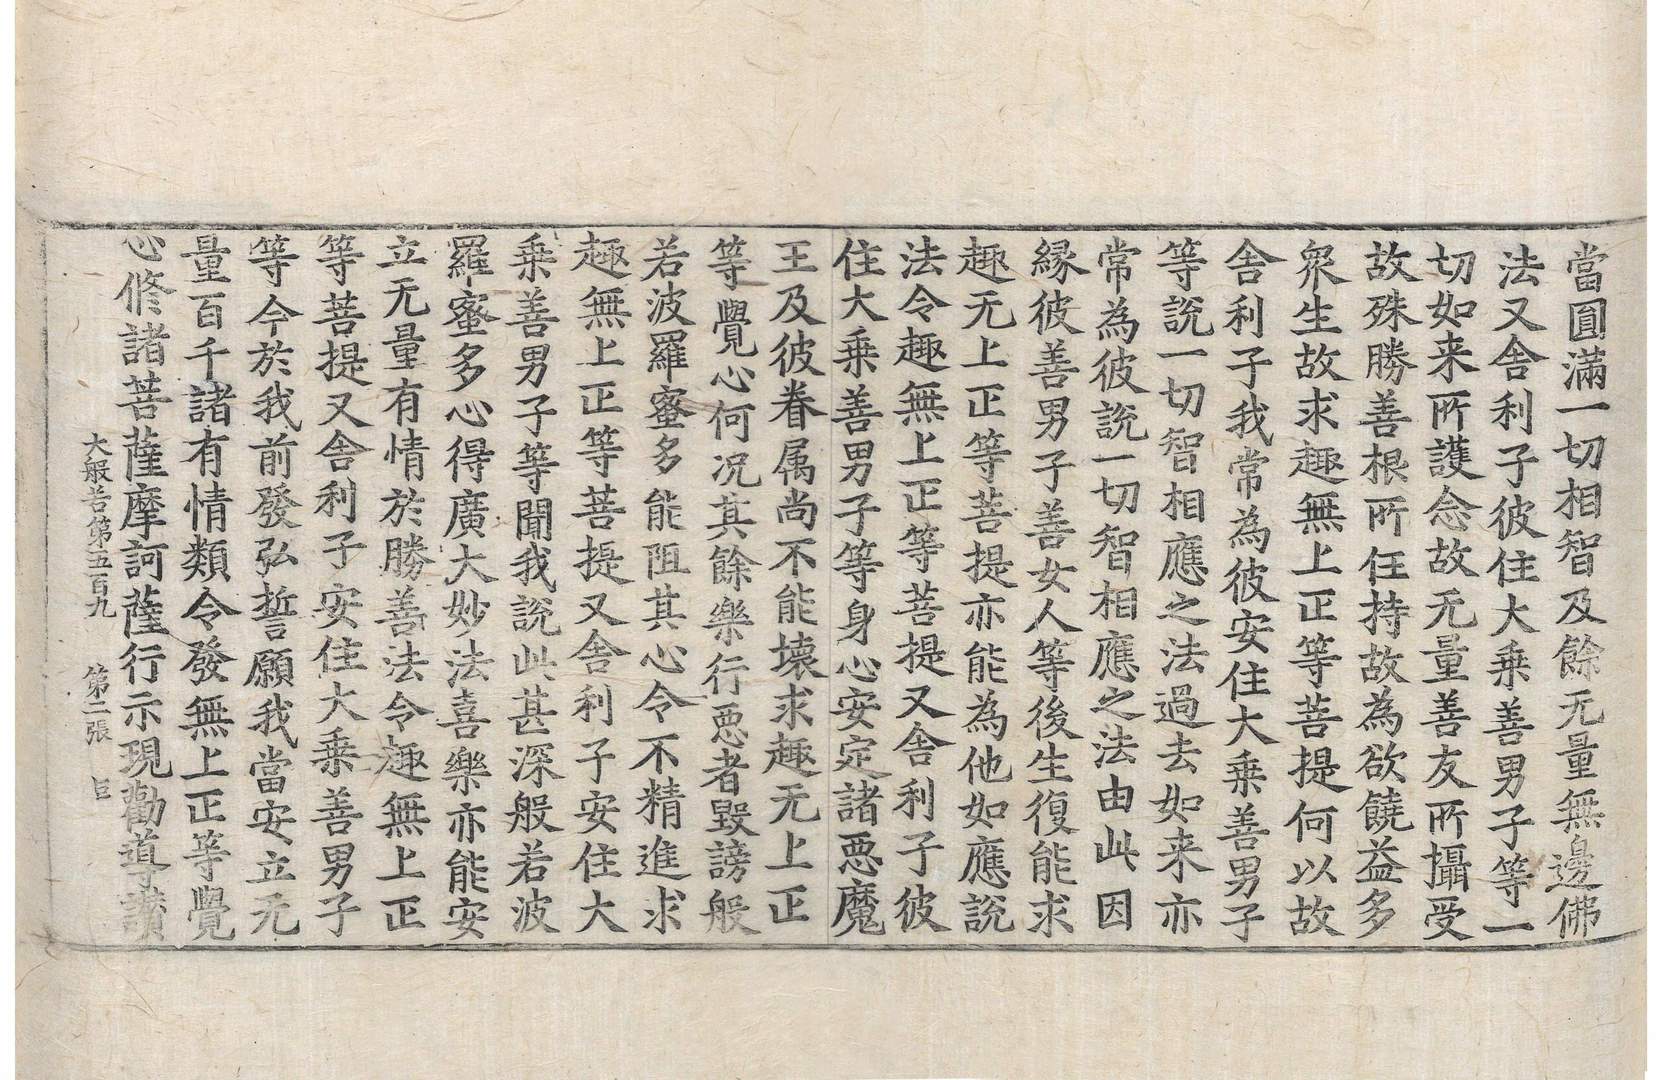 當圓滿一切相智及餘无量無邊佛
法又舍利子彼住大乗善男子等一
切如来所護念故无量善友所攝受
故殊勝善根所任持故為欲饒益多
衆生故求趣無上正等菩提何以故
舍利子我常為彼安住大乗善男子
等說一切智相應之法過去如来亦
常為彼說一切智相應之法由此因
縁彼善男子善女人等後生復能求
趣无上正等菩提亦能為他如應說
法令趣無上正等菩提又舍利子彼
住大乗善男子等身心安定諸惡魔
王及彼眷属尚不能壞求趣无上正
等覺心何况其餘樂行惡者毀謗般
若波羅蜜多能阻其心令不精進求
趣無上正等菩提又舍利子安住大
乗善男子等聞我說此甚深般若波
羅蜜多心得廣大妙法喜樂亦能安
立无量有情於勝善法令趣無上正
等菩提又舍利子安住大乗善男子
等今於我前發弘誓願我當安立无
量百千諸有情類令發無上正等覺
心修諸菩薩摩訶薩行示現勸導讃
大般若第五百九 第二張 巨